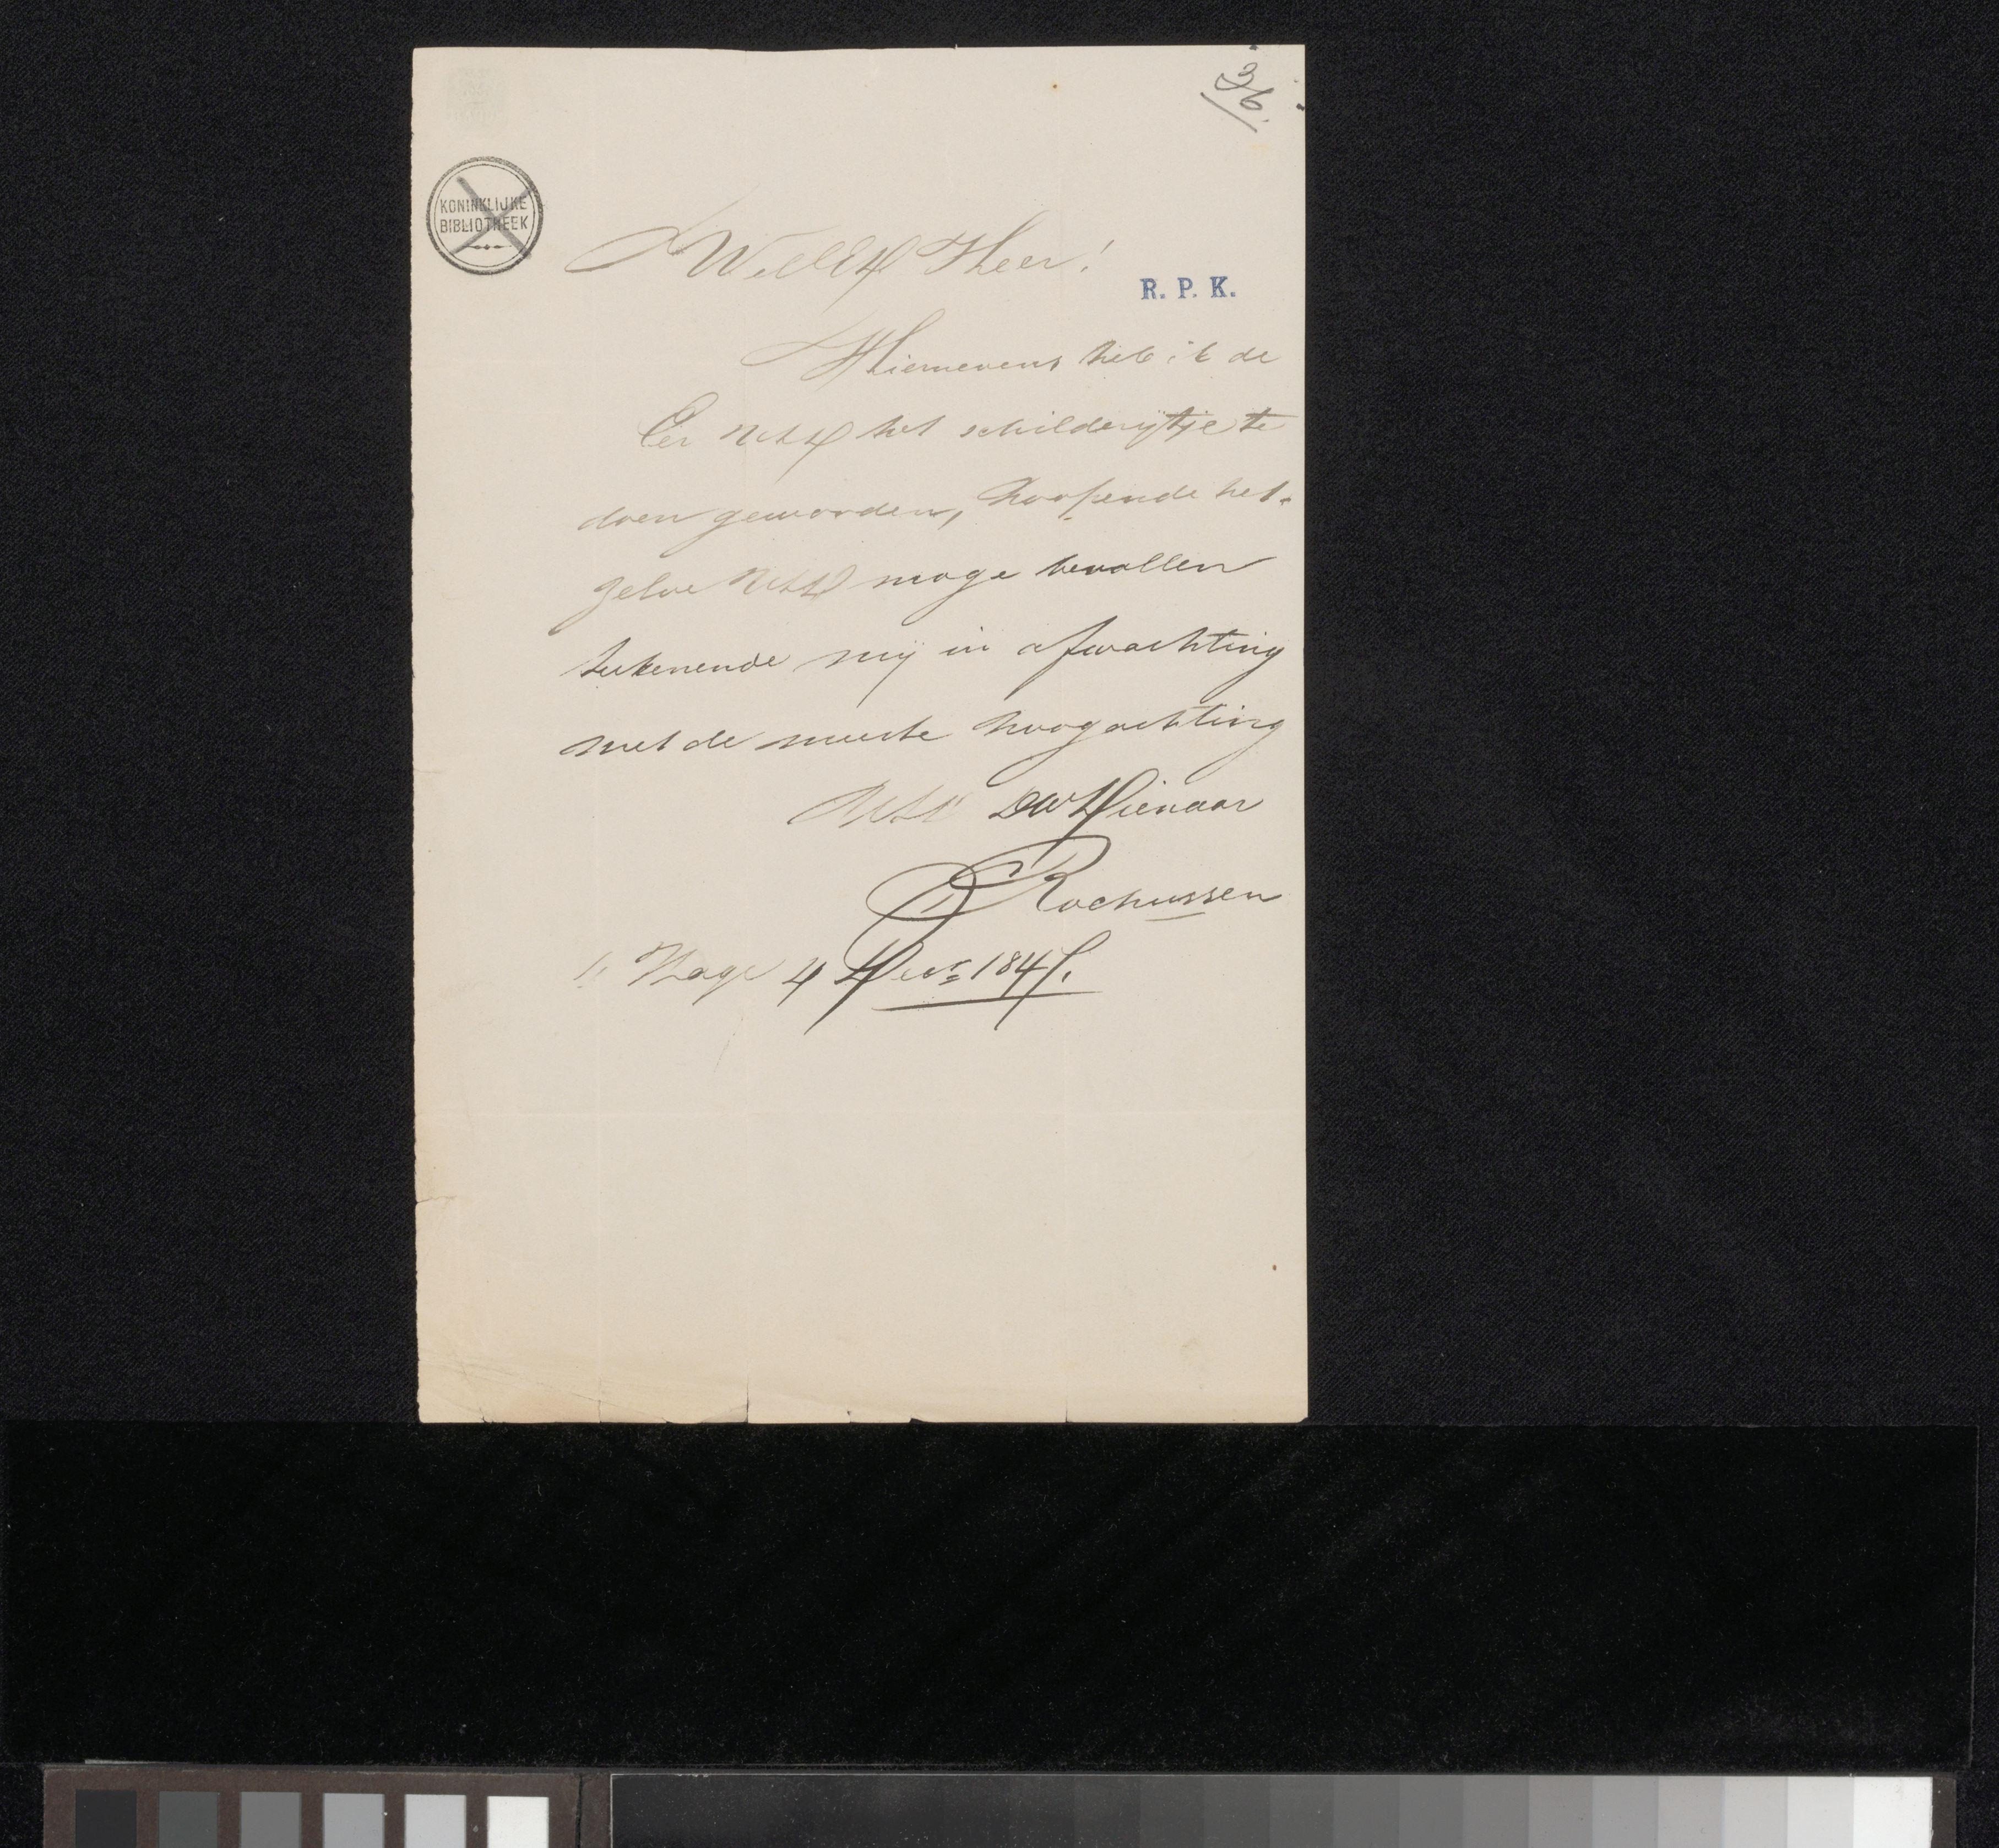 36.
KONINKLIJKE
BIBLIOTHEEK
WelEd Heer!
R. P. K.
Hiernevens heb ik de
Eer UEd het schilderijtje te
doen geworden, hoopende het-
zelve UEd moge bevallen
teekenende mij in afwachting
met de meeste hoogachting
UEd DWDienaar
Rochussen
s Hage 4 Decr